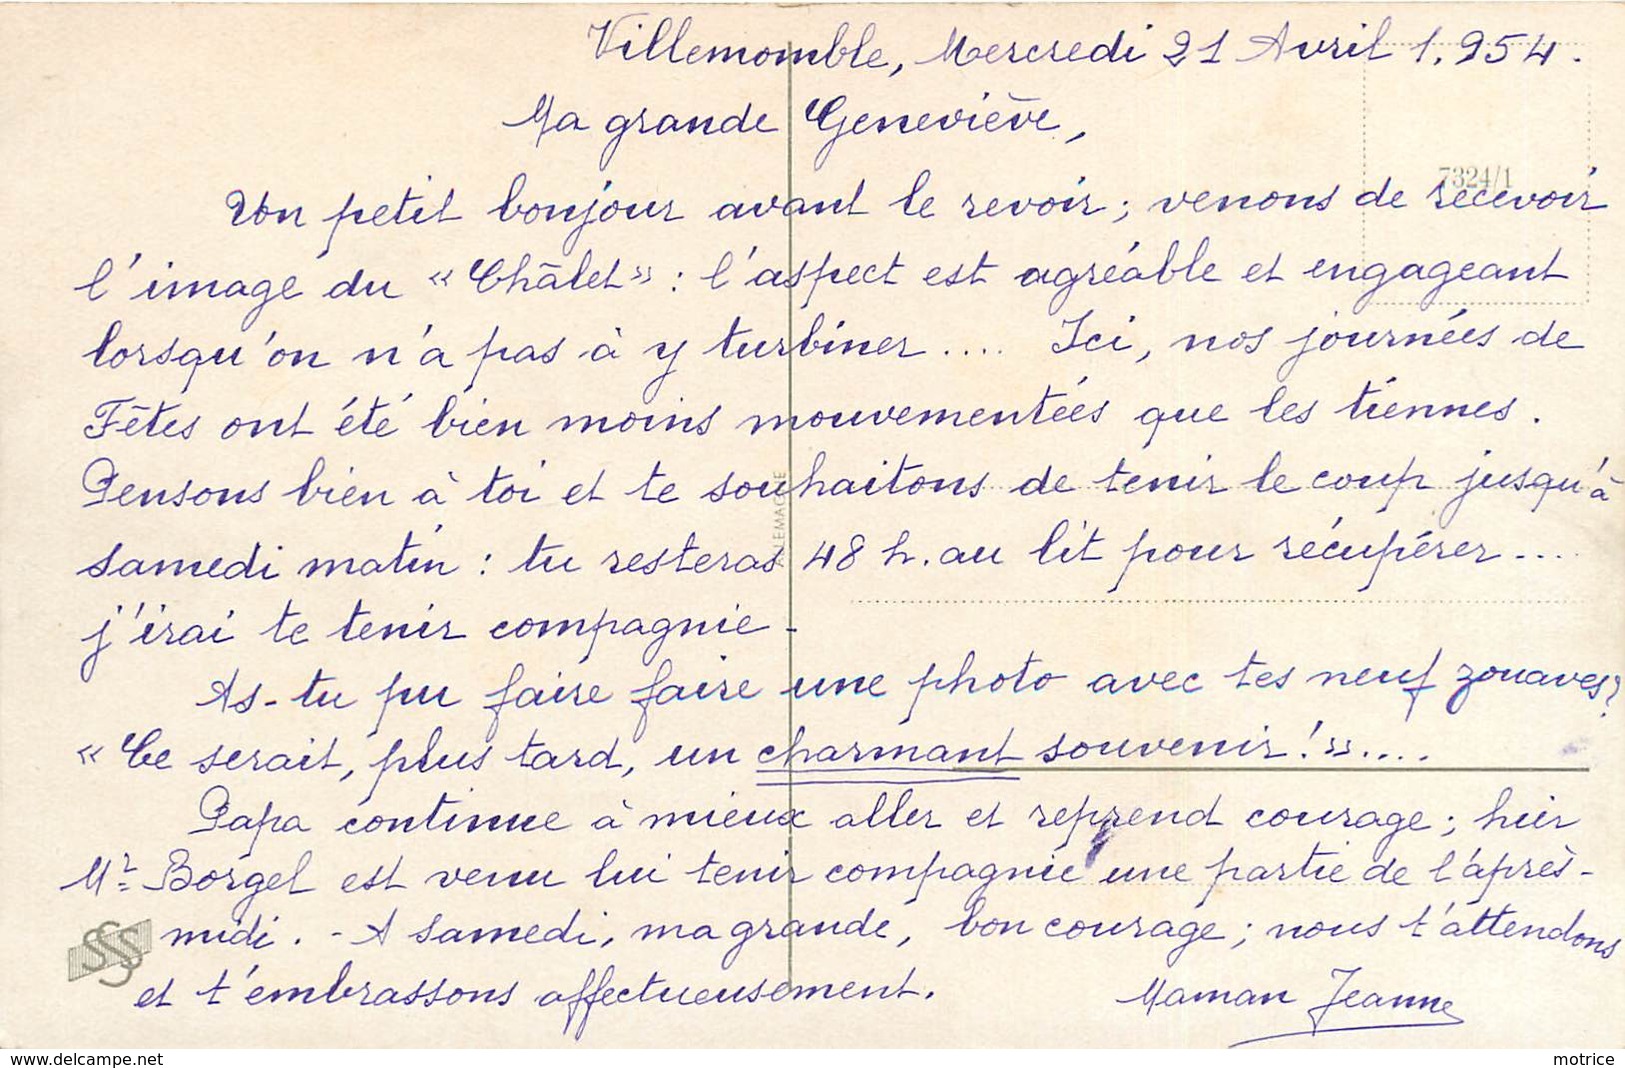 Villemomble, Mercredi 21 Avril 1.954.
Ma grande Geneviève,
7324/1
Un petit bonjour avant le revoir ; venons de recevoir
l'image du « Châlet » : l'aspect est agréable et engageant
lorsqu'on n'a pas à y turbiner .... Ici, nos journées de
Fêtes ont été bien moins mouvementées que les tiennes.
Pensons bien à toi et te souhaitons de tenir le coup jusqu'à
ALLEMAGNE
samedi matin : tu resteras 48 h. au lit pour récupérer ....
j'irai te tenir compagnie -
As-tu pu faire faire une photo avec tes neuf zouaves ?
« Ce serait, plus tard, un charmant souvenir ! » ....
Papa continue à mieux aller et reprend courage ; hier
Mr Borgel est venu lui tenir compagnie une partie de l'après-
midi. - A samedi, ma grande, bon courage ; nous t'attendons
SSS
et t'embrassons affectueusement.
Maman Jeanne
www.delcampe.net
motrice